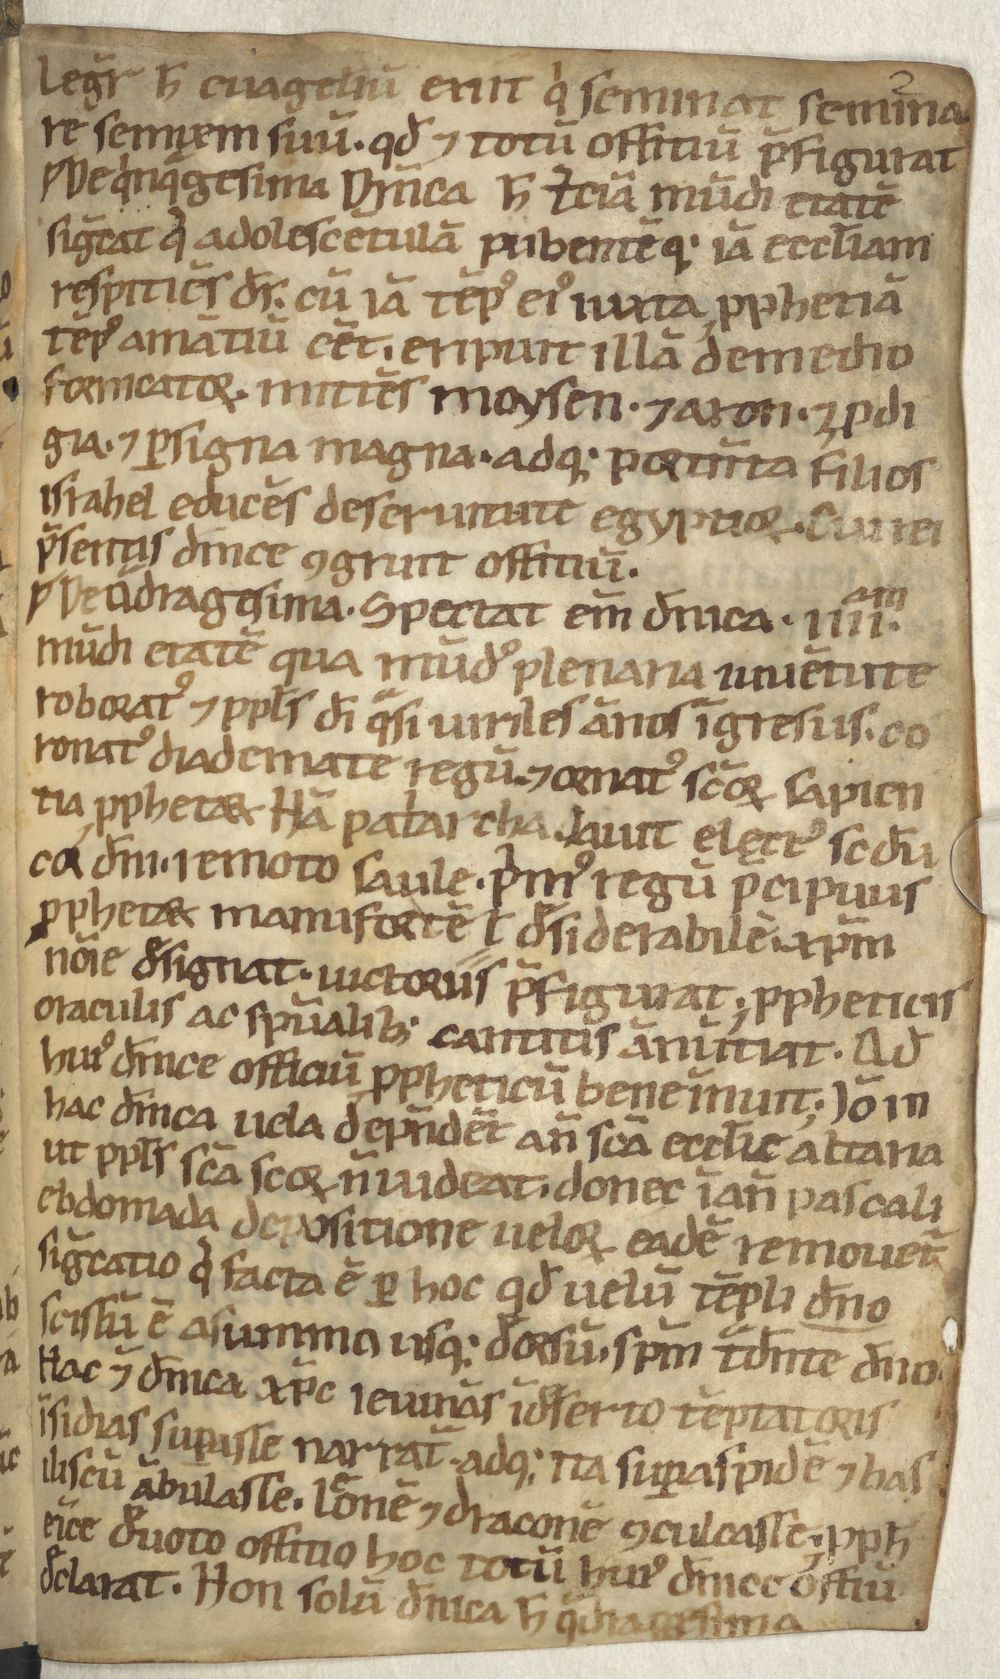 2
Legr̄ h̄ euageliū exiit q̇ seminat semina
re semem suū. qđ ⁊ totū offitiū p̄figurat
De qͥnqͣgesima Dn̄ica h̄ t̄ciā mūdi etatē
sig̃cat q̄ adolescētulā pubentēq; iā eccl̄iam
respitiēs dr̄. cū iā tēp᷒ ei᷒ iuxta ꝓphetiā
tēp᷒ amātiū eēt. eripuit illā demedio
fornicatoꝝ. mittēs moysen. ⁊ aron. ⁊ ꝓdi
gia. ⁊ ꝑ signa magna. adq; portēta filios
israhel educēs deseruitute egyptioꝝ. Cui rei
p̄sentis dn̄ice ꝯgruit offitiū.
De q̄dragesima. Spectat em̄ dn̄ica. iiii.am
mūdi etatē qua mūd᷒ plenaria iuuētute
roborat᷒ ⁊ ppl̄s di qͣsi uiriles ānos īgresus. co
ronat᷒ diademate regū. ⁊ ornat᷒ sc̄oꝝ sapien
tia ꝓphetaꝝ Nā patͥarcha dauit elect᷒ sc̄dū
cor dn̄i. remoto saule. pͥm᷒ regū p̄cipuus
ꝓphetaꝝ manufortē ł d̄siderabilē. xp̄m
nōīe d̄signat. uictoriis p̄figurat; ꝓpheticis
oraculis ac sp̄ualib; canticis ānūtiat. Ad
hui᷒ dn̄ice officiū ꝓpheticū bene īnuit; Iō in
hac dn̄ica uela depn̄dēt̄ an̄ sc̄a eccl̄ie altaria
ut ppl̄s sc̄a sc̄oꝝ n̄ uideat. donec īan̄ pascali
ebdomada depositione ueloꝝ eadē remouet̄
sig̃catio q̄ facta ē ꝑ hoc qđ uelū tēpli dn̄o
scissū ē asummo usq; dorsū. sp̄m t̄dn̄te dn̄o.
Hac ⁊ dn̄ica xp̄c ieiunās īd̄serto tēptatoris
īsidias supasse narrat̄. adq; ita sup aspidē ⁊ bas
iliscū ābulasse. leonē ⁊ draconē ꝯculcasse; ꝓph̄
eīce d̄uoto offitio hoc totū hui᷒ dn̄ice offitiū
d̄clarat. Non solū dn̄ica h̄ q̄dragesima